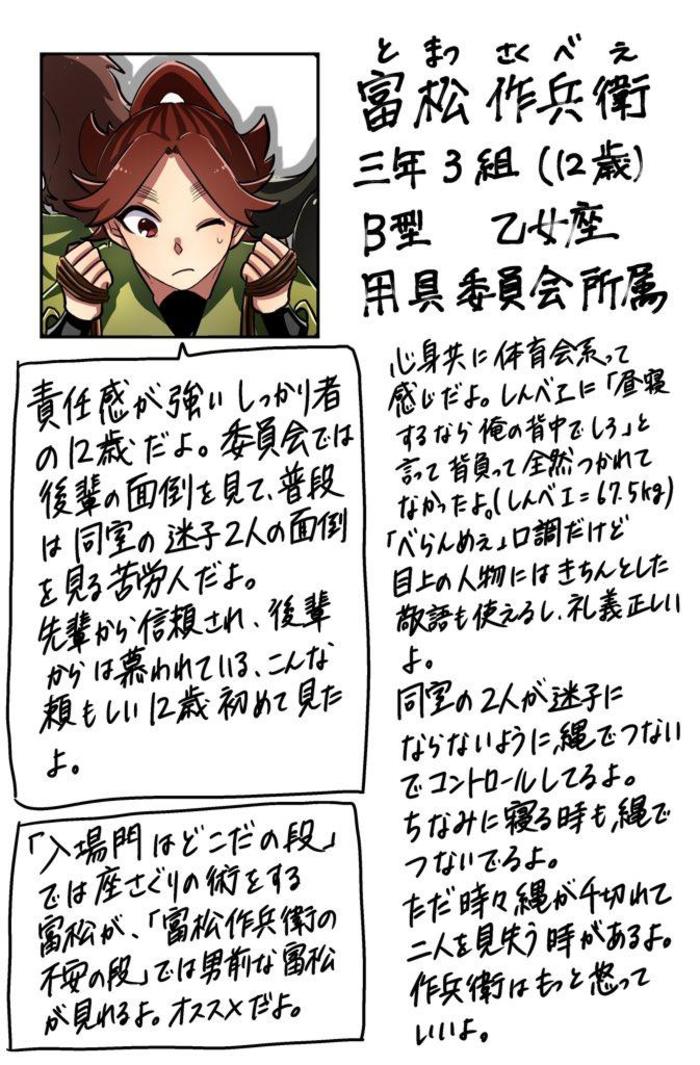 とまつ さくべえ
富松 作兵衛
三年3組(12歳)
B型 乙女座
用具委員会所属
責任感が強いしっかり者
の12歳だよ。委員会では
後輩の面倒を見て、普段
は同室の迷子2人の面倒
を見る苦労人だよ。
先輩から信頼され、後輩
からは慕われている、こんな
頼もしい12歳初めて見た
よ。
「入場門はどこだの段」
では座さぐりの術をする
富松が、「富松作兵衛の
不安の段」では男前な富松
が見れるよ。オススメだよ。
心身共に体育会系って
感じだよ。しんべエに「昼寝
するなら俺の背中でしろ」と
言って背負って全然つかれて
なかったよ。(しんべエ=67.5kg)
「べらんめぇ」口調だけど
目上の人物にはきちんとした
敬語も使えるし、礼義正しい
よ。
同室の2人が迷子に
ならないように、縄でつない
でコントロールしてるよ。
ちなみに寝る時も、縄で
つないでるよ。
ただ時々縄が千切れて
二人を見失う時があるよ。
作兵衛はもっと怒って
いいよ。